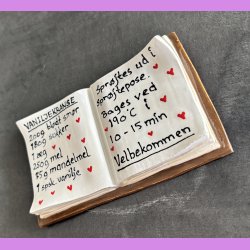 VANILJEKRANSE
200g blødt smør
180g sukker
1 æg
250g mel
55g mandelmel
1 spsk vanilje
Sprøjtes ud i
sprøjtepose.
Bages ved
190°C i
10-15 min
Velbekommen